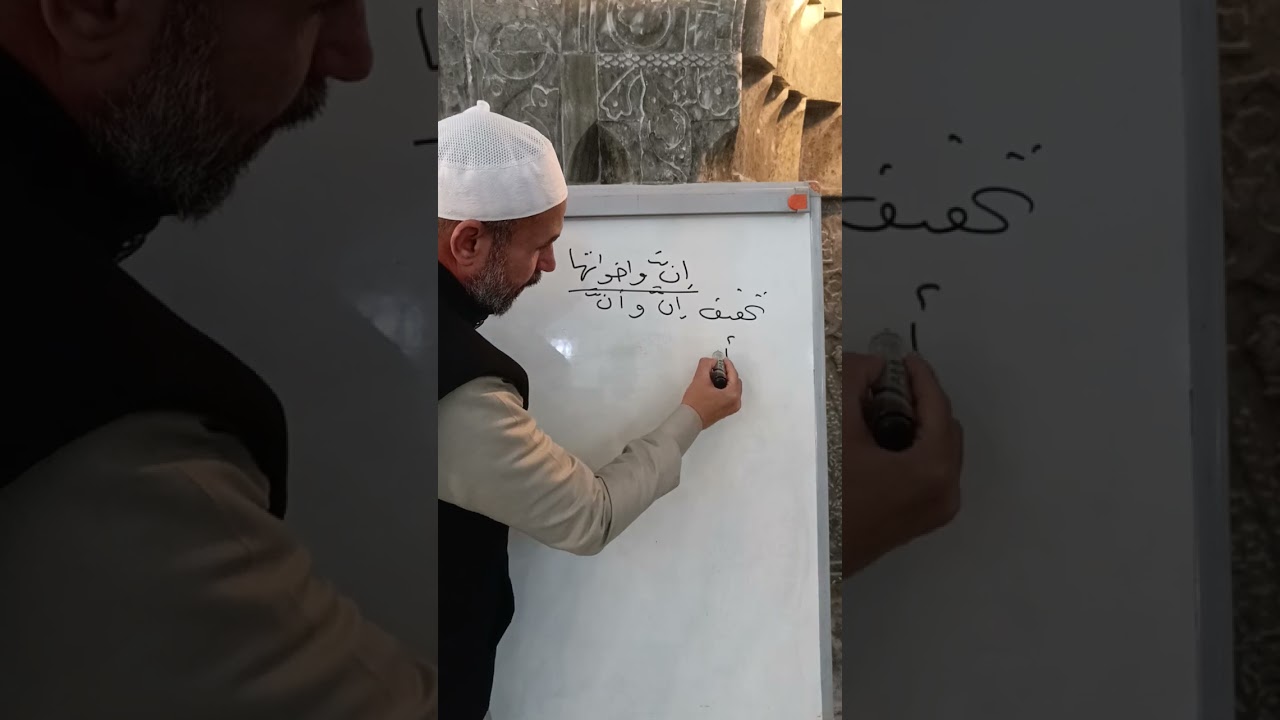 إنّ واخواتها
تخفيف إنّ و أنّ
أ